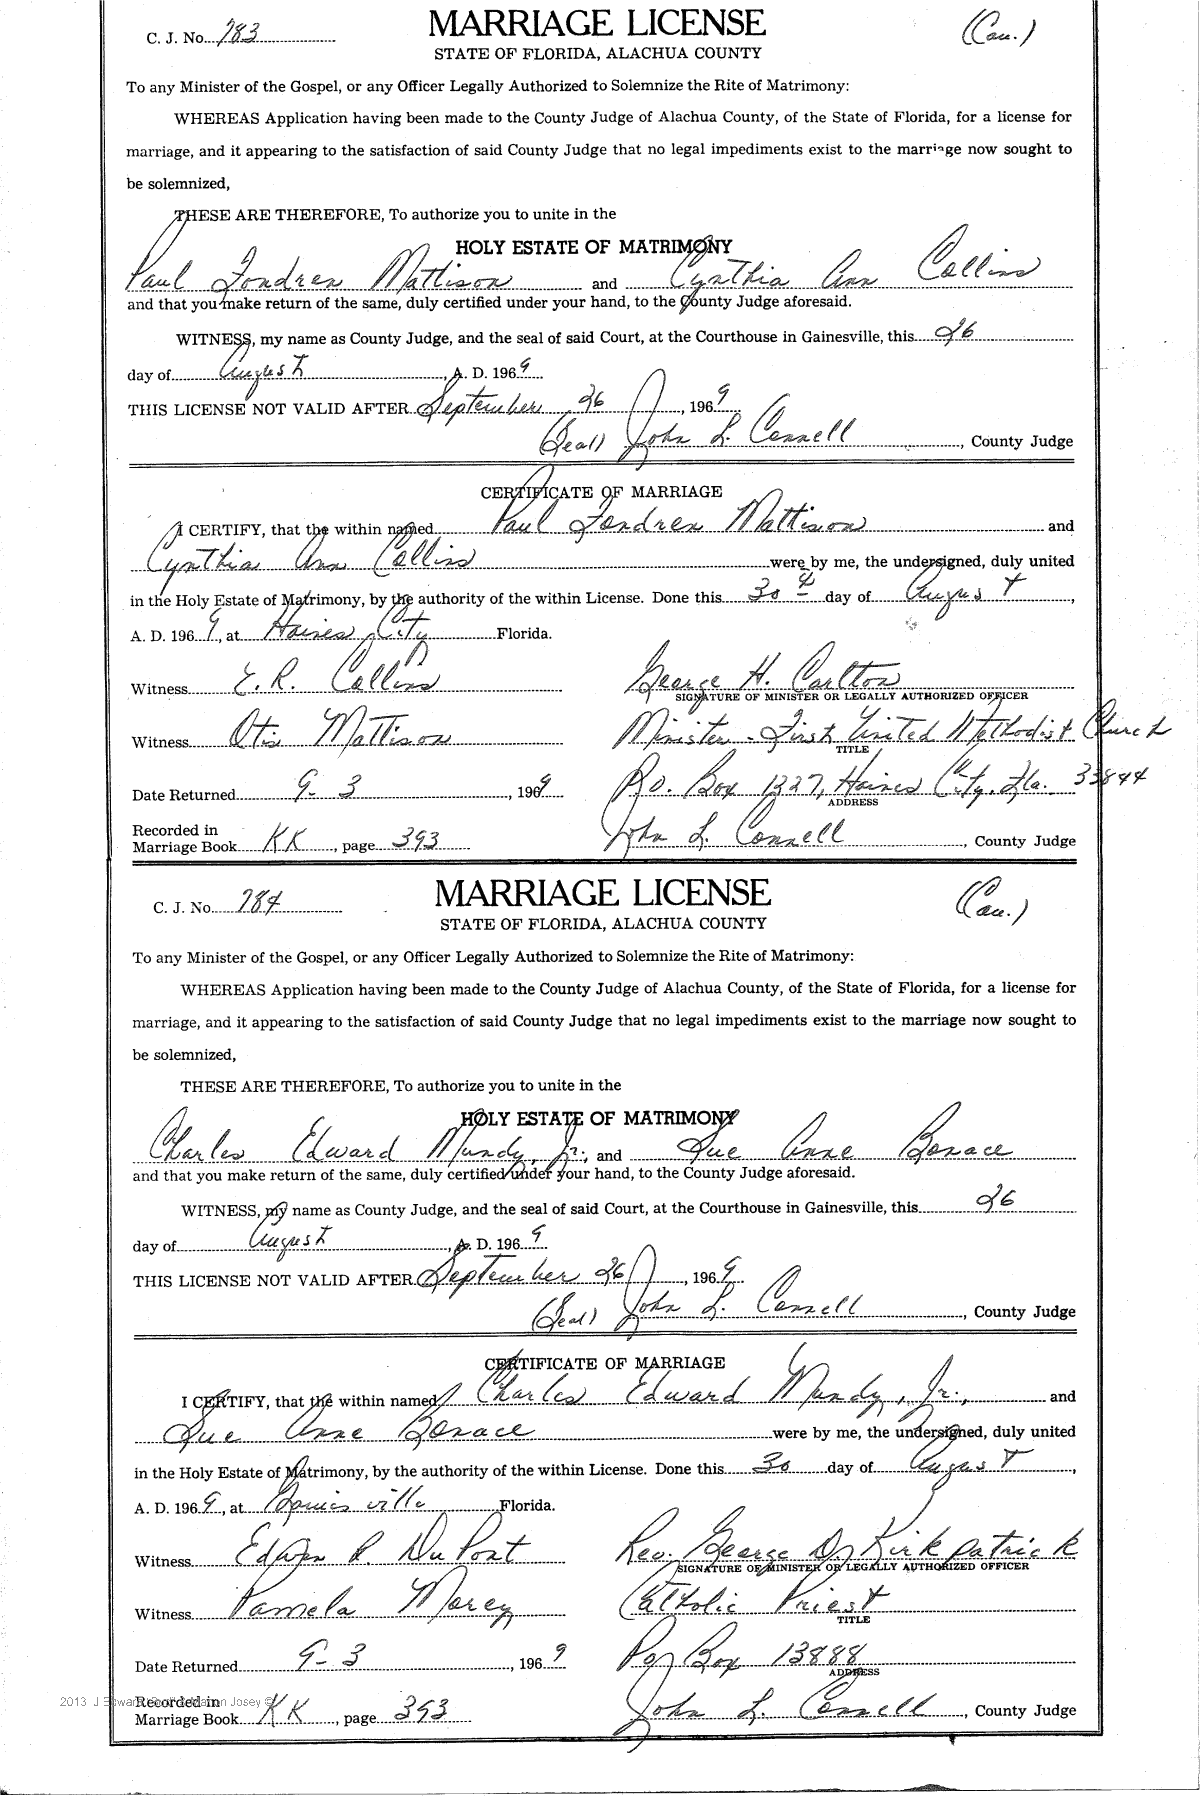 C. J. No. 783 MARRIAGE LICENSE (Cau.)
STATE OF FLORIDA, ALACHUA COUNTY
To any Minister of the Gospel, or any Officer Legally Authorized to Solemnize the Rite of Matrimony:
WHEREAS Application having been made to the County Judge of Alachua County, of the State of Florida, for a license for
marriage, and it appearing to the satisfaction of said County Judge that no legal impediments exist to the marriage now sought to
be solemnized,
THESE ARE THEREFORE, To authorize you to unite in the
HOLY ESTATE OF MATRIMONY
Paul Fondren Mattison and Cynthia Ann Collins
and that you make return of the same, duly certified under your hand, to the County Judge aforesaid.
WITNESS, my name as County Judge, and the seal of said Court, at the Courthouse in Gainesville, this 26
day of August, A. D. 1969
THIS LICENSE NOT VALID AFTER September 26, 1969
(Seal) John L. Connell, County Judge
CERTIFICATE OF MARRIAGE
I CERTIFY, that the within named Paul Fondren Mattison and
Cynthia Ann Collins were by me, the undersigned, duly united
in the Holy Estate of Matrimony, by the authority of the within License. Done this 30th day of August,
A. D. 1969, at Haines City Florida.
Witness E. R. Collins George H. Carlton
SIGNATURE OF MINISTER OR LEGALLY AUTHORIZED OFFICER
Witness Otis Mattison Minister - First United Methodist Church
TITLE
Date Returned 9-3, 1969 P.O. Box 1327, Haines City, Fla. 33844
ADDRESS
Recorded in
Marriage Book KK, page 393 John L. Connell, County Judge
C. J. No. 784 MARRIAGE LICENSE (Cau.)
STATE OF FLORIDA, ALACHUA COUNTY
To any Minister of the Gospel, or any Officer Legally Authorized to Solemnize the Rite of Matrimony:
WHEREAS Application having been made to the County Judge of Alachua County, of the State of Florida, for a license for
marriage, and it appearing to the satisfaction of said County Judge that no legal impediments exist to the marriage now sought to
be solemnized,
THESE ARE THEREFORE, To authorize you to unite in the
HOLY ESTATE OF MATRIMONY
Charles Edward Mundy, Jr., and Sue Anne Bonace
and that you make return of the same, duly certified under your hand, to the County Judge aforesaid.
WITNESS, my name as County Judge, and the seal of said Court, at the Courthouse in Gainesville, this 26
day of August, A. D. 1969
THIS LICENSE NOT VALID AFTER September 26, 1969
(Seal) John L. Connell, County Judge
CERTIFICATE OF MARRIAGE
I CERTIFY, that the within named Charles Edward Mundy, Jr., and
Sue Anne Bonace were by me, the undersigned, duly united
in the Holy Estate of Matrimony, by the authority of the within License. Done this 30 day of August,
A. D. 1969, at Gainesville Florida.
Witness P. DuPont Rev. George D. Kirkpatrick
SIGNATURE OF MINISTER OR LEGALLY AUTHORIZED OFFICER
Witness Pamela Morey Catholic Priest
TITLE
Date Returned 9-3, 1969 PO Box 13888
ADDRESS
2013 J Josey ©
Recorded in
Marriage Book KK, page 393 John L. Connell, County Judge